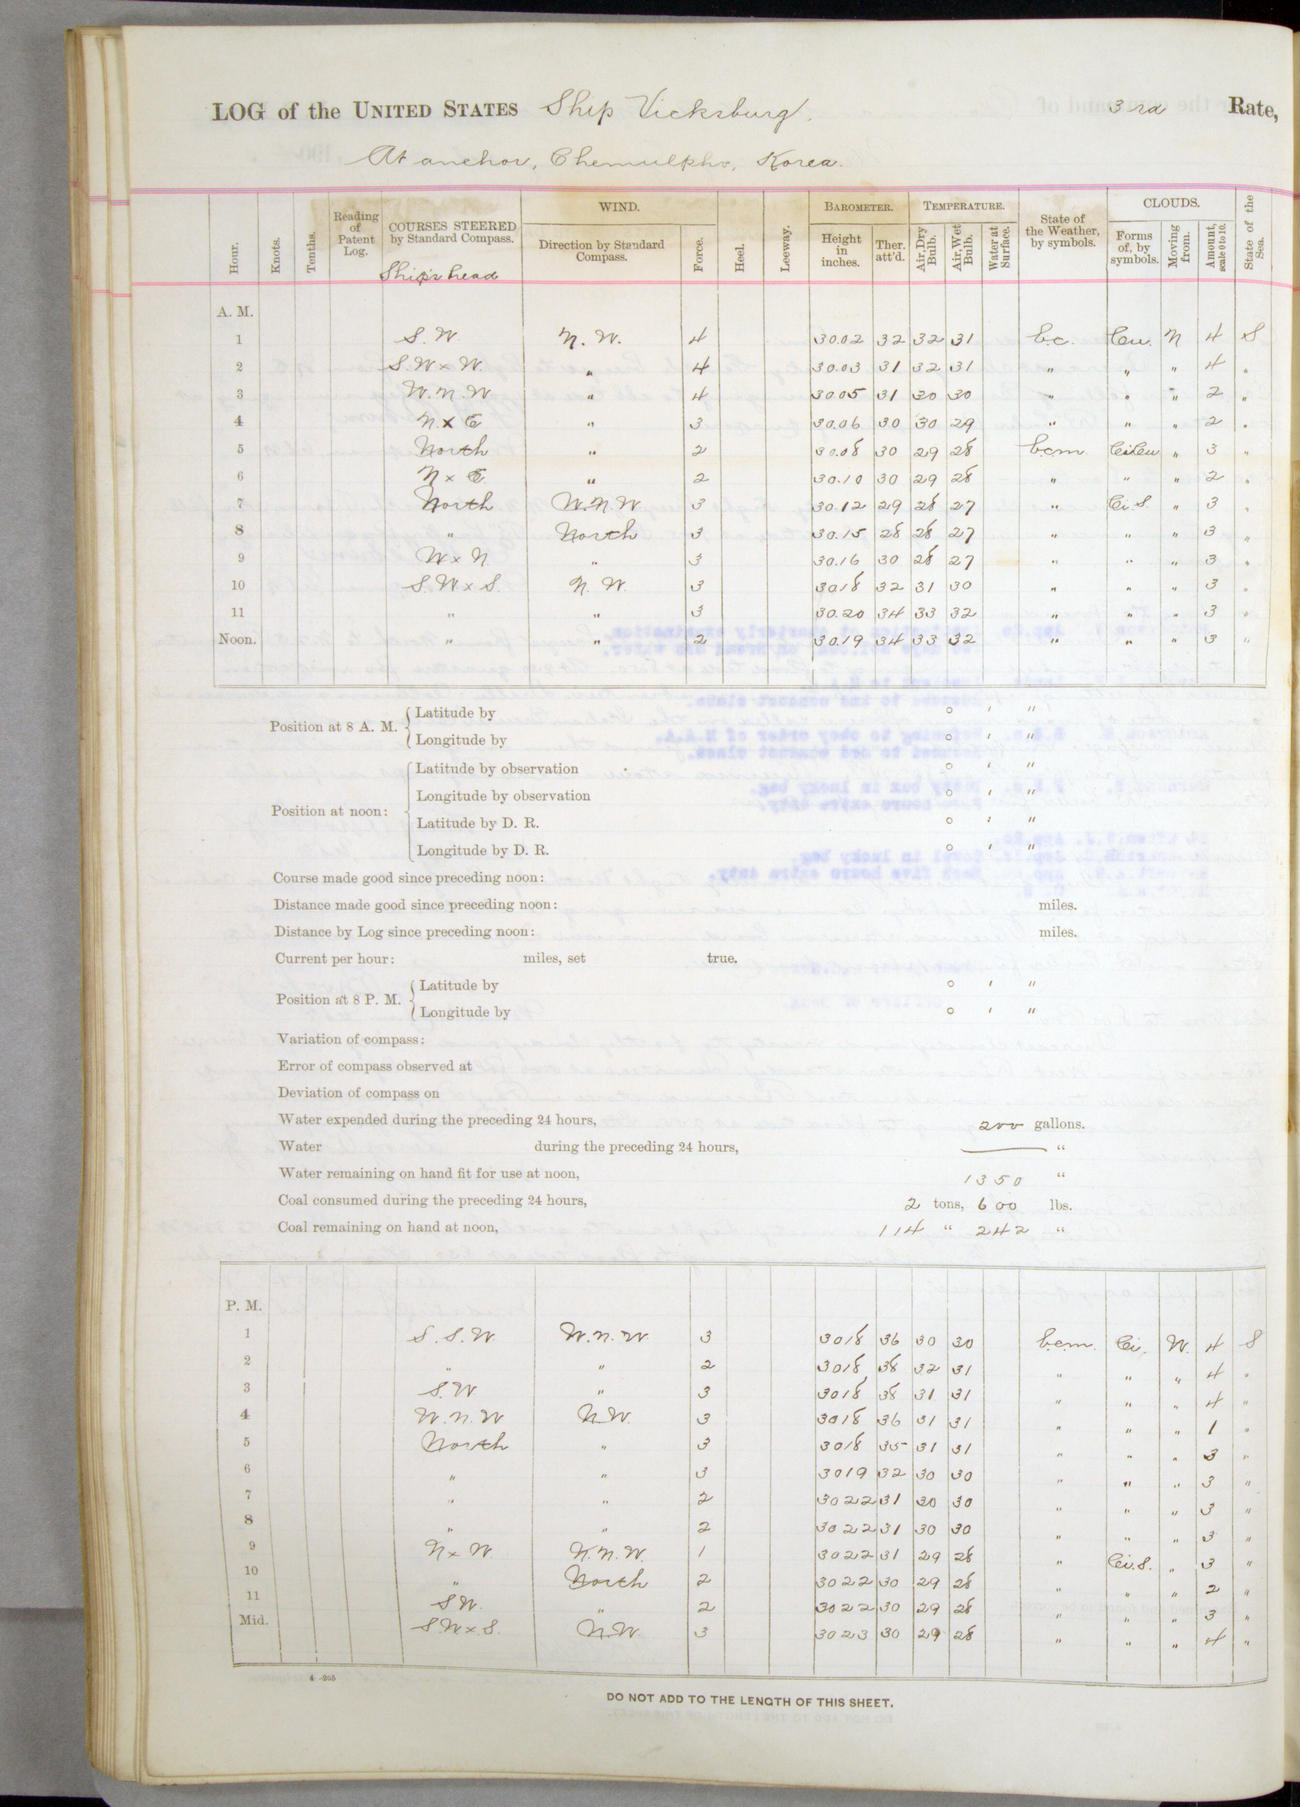 LOG of the UNITED STATES Ship Vicksburg, 3rd Rate,
At anchor, Chemulpho, Korea.
Hour. Knots. Tenths. Reading of Patent Log. COURSES STEERED by Standard Compass. WIND. Direction by Standard Compass. Force. Heel. Leeway. BAROMETER. Height in inches. Ther. att'd. TEMPERATURE. Air, Dry Bulb. Air, Wet Bulb. Water at Surface. State of the Weather, by symbols. CLOUDS. Forms of, by symbols. Moving from. Amount, scale 0 to 10. State of the Sea.
Ship's head
A. M.
1 S.W. N.W. 4 30.02 32 32 31 b.c. Cu. N 4 S
2 S.W x W. " 4 30.03 31 32 31 " " " 4 "
3 W.N.W " 4 30.05 31 30 30 " " " 2 "
4 N x E " 3 30.06 30 30 29 " " " 2 "
5 North " 2 30.08 30 29 28 b.c.m. Ci.Cu " 3 "
6 N x E " 2 30.10 30 29 28 " " " 2 "
7 North W.N.W 3 30.12 29 28 27 " Ci.S. " 3 "
8 " North 3 30.15 28 28 27 " " " 3 "
9 W x N. " 3 30.16 30 28 27 " " " 3 "
10 S.W x S. N.W. 3 3018 32 31 30 " " " 3 "
11 " " 3 30.20 34 33 32 " " " 3 "
Noon. " " 2 30.19 34 33 32 " " " 3 "
Position at 8 A. M. Latitude by ° ' "
Longitude by ° ' "
Position at noon: Latitude by observation ° ' "
Longitude by observation ° ' "
Latitude by D. R. ° ' "
Longitude by D. R. ° ' "
Course made good since preceding noon:
Distance made good since preceding noon: miles.
Distance by Log since preceding noon: miles.
Current per hour: miles, set true.
Position at 8 P. M. Latitude by ° ' "
Longitude by ° ' "
Variation of compass:
Error of compass observed at
Deviation of compass on
Water expended during the preceding 24 hours, 200 gallons.
Water during the preceding 24 hours, —— "
Water remaining on hand fit for use at noon, 1350 "
Coal consumed during the preceding 24 hours, 2 tons, 600 lbs.
Coal remaining on hand at noon, 114 " 242 "
P. M.
1 S.S.W W.N.W. 3 3018 36 30 30 b.c.m. Ci. W. 4 S
2 " " 2 3018 38 32 31 " " " 4 "
3 S.W " 3 3018 38 31 31 " " " 4 "
4 W.N.W N.W. 3 3018 36 31 31 " " " 1 "
5 North " 3 3018 35 31 31 " " " 3 "
6 " " 3 3019 32 30 30 " " " 3 "
7 " " 2 3022 31 30 30 " " " 3 "
8 " " 2 3022 31 30 30 " " " 3 "
9 N x W. N.N.W. 1 3022 31 29 28 " Ci.S. " 3 "
10 " North 2 3022 30 29 28 " " " 2 "
11 S.W. " 2 3022 30 29 28 " " " 3 "
Mid. S.W x S. N.W. 3 3023 30 29 28 " " " 4 "
4—205
DO NOT ADD TO THE LENGTH OF THIS SHEET.